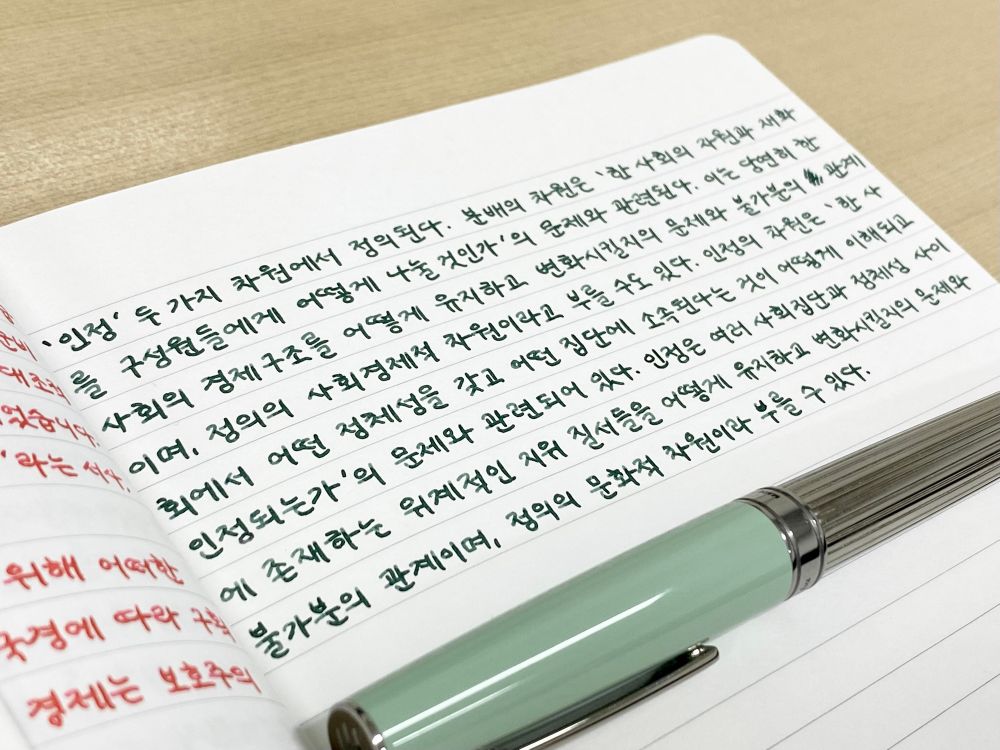 대조적
었습니다.
'라는 서사,
위해 어떠한
국경에 따라
경제는 보호주의
'인정' 두 가지 차원에서 정의된다. 분배의 차원은 '한 사회의 자원과 재화
를 구성원들에게 어떻게 나눌 것인가'의 문제와 관련된다. 이는 당연히 한
사회의 경제구조를 어떻게 유지하고 변화시킬지의 문제와 불가분의 관계
이며, 정의의 사회경제적 차원이라고 부를 수도 있다. 인정의 차원은 '한 사
회에서 어떤 정체성을 갖고 어떤 집단에 소속된다는 것이 어떻게 이해되고
인정되는가'의 문제와 관련되어 있다. 인정은 여러 사회집단과 정체성 사이
에 존재하는 위계적인 지위 질서들을 어떻게 유지하고 변화시킬지의 문제와
불가분의 관계이며, 정의의 문화적 차원이라 부를 수 있다.